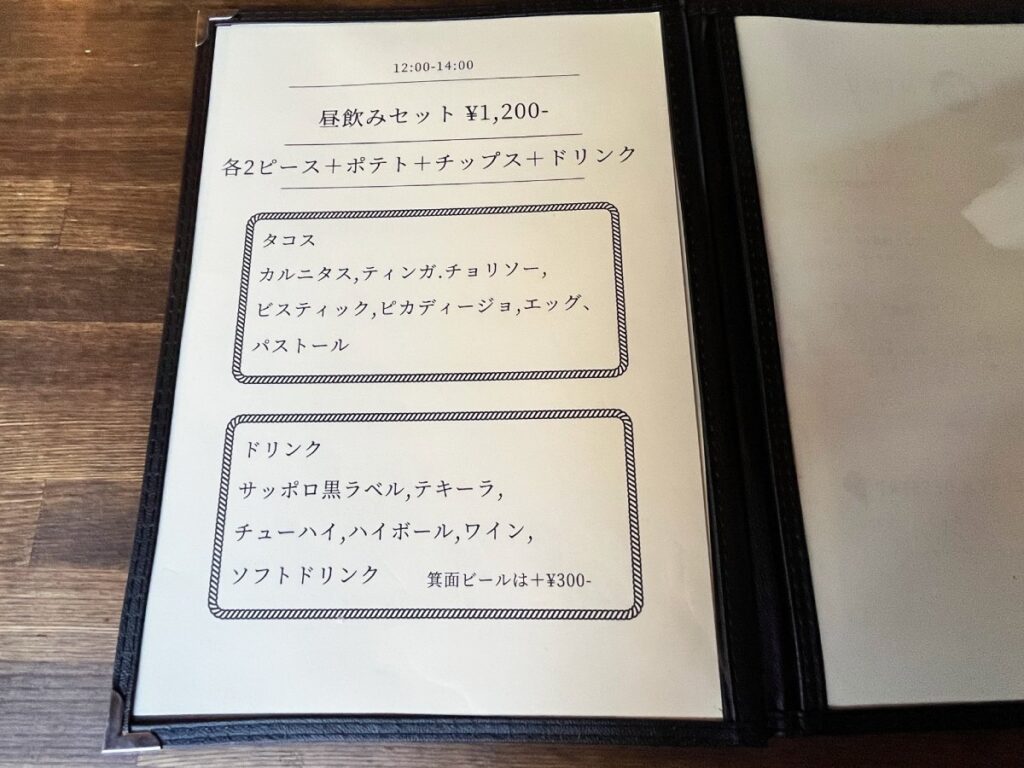 12:00-14:00
昼飲みセット ¥1,200-
各2ピース＋ポテト＋チップス＋ドリンク
タコス
カルニタス,ティンガ.チョリソー,
ビスティック,ピカディージョ,エッグ、
パストール
ドリンク
サッポロ黒ラベル,テキーラ,
チューハイ,ハイボール,ワイン,
ソフトドリンク 箕面ビールは＋¥300-